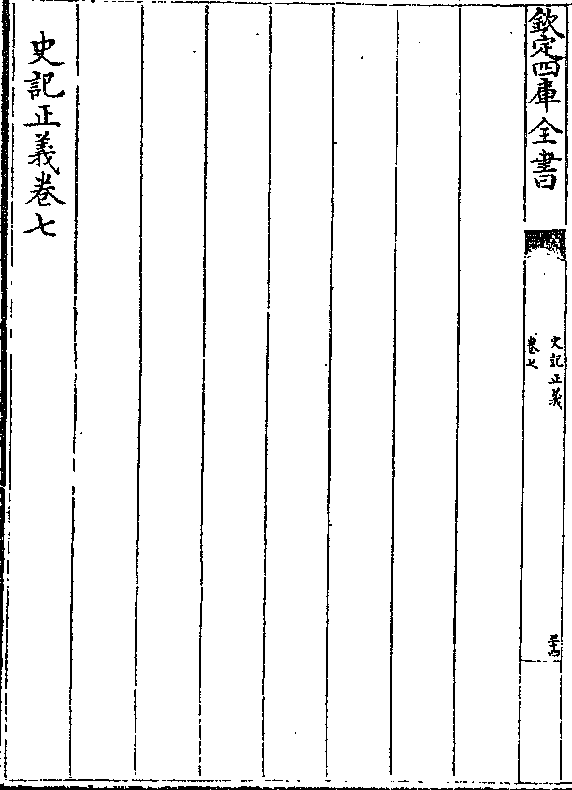 欽定四庫全書
史記正義
卷七
史記正義卷七